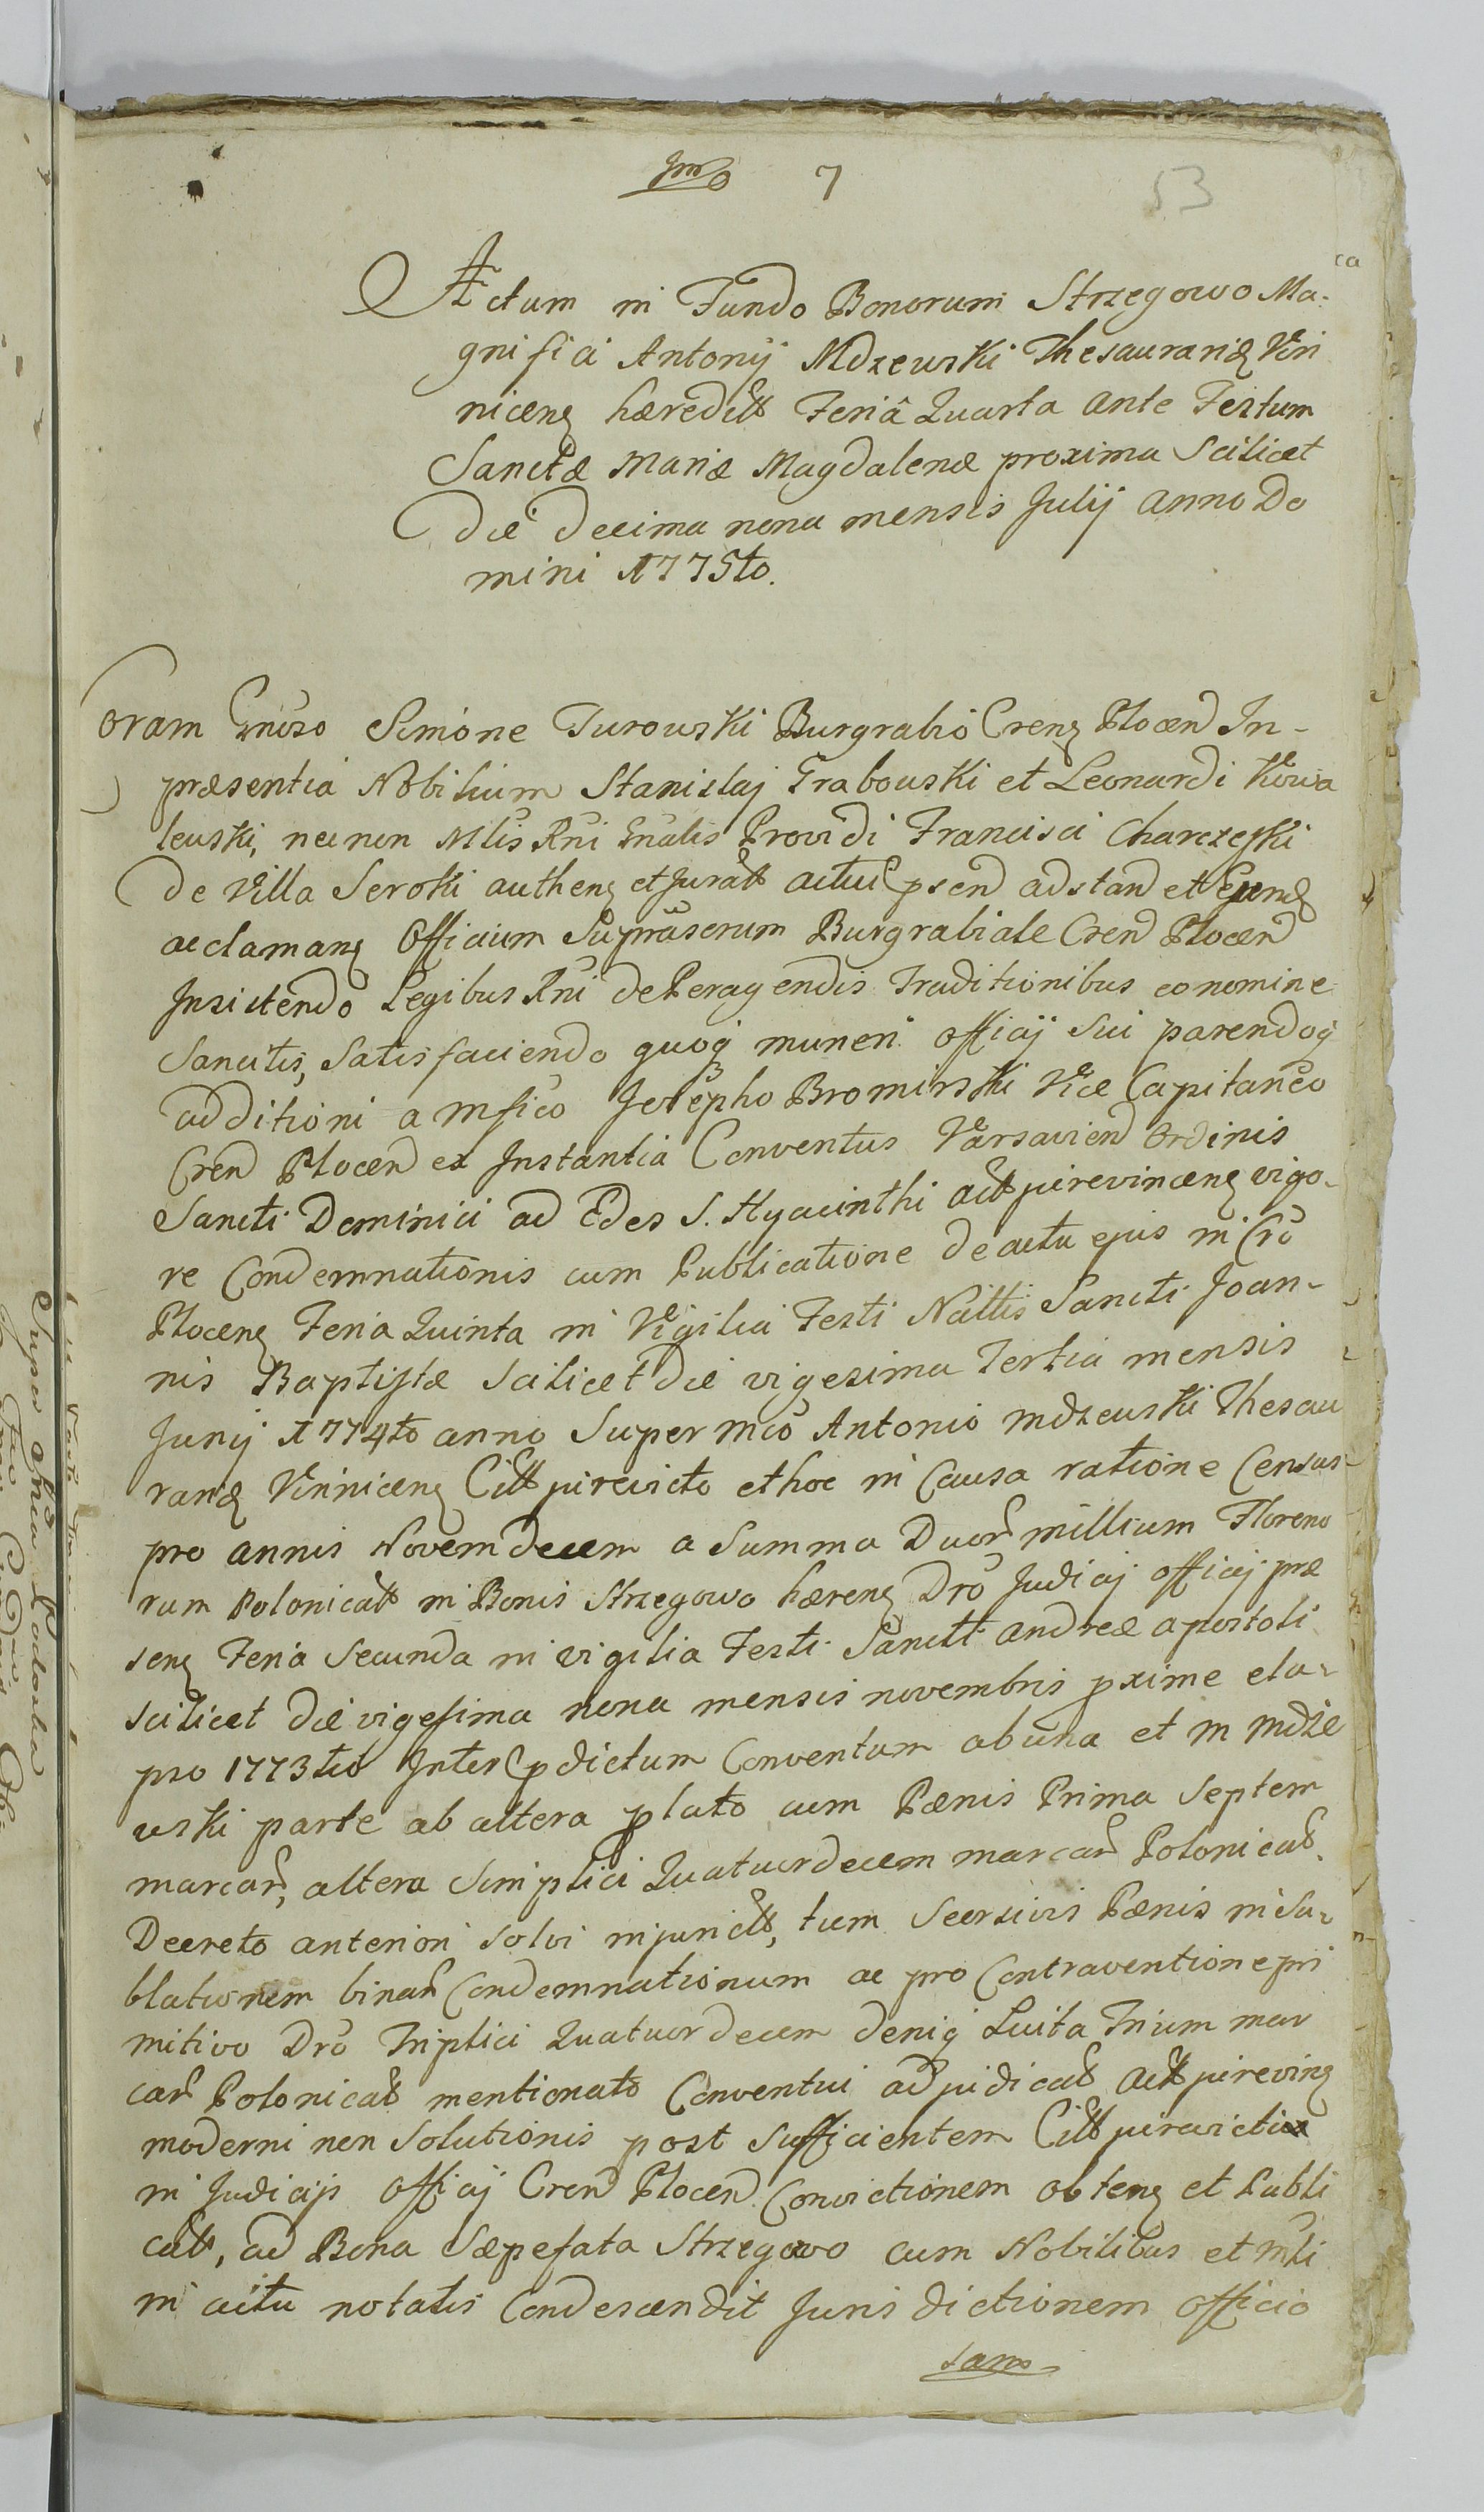 7 53
Actum in Fundo Bonorum Strzegowo Ma-
gnifici Antonij Mdzewski Thesaurarij Vin
nicens hæredit Feriâ Quarta ante Festum
Sanctæ Mariæ Magdalenæ proxima Scilicet
Die Decima nona mensis Julij Anno Do
mini 1775to.
Coram Gnũso Simone Turowski Burgrabio Cren Plocen In-
præsentia Nobilium Stanislaj Grabowski et Leonardi Kowa
lewski, necnon Mlis Rni Gnalis Providi Francisci Charczeski
de Villa Seroki authen et Jurat actui psen adstan et
acclaman Officium Supra Burgrabiale Cren Plocen
Insistendo Legibus Rni de Peragendis Traditionibus eo nomine
Sancitis, Satisfaciendo quoq muneri officij Sui parendoq
additioni a Mfico Josepho Bromirski Vice Capitaneo
Cren Plocen ex Instantia Conventus Varsavien Ordinis
Sancti Dominici ad Edes S. Hyacinthi act jurevincen vigo-
re Condemnationis cum Publicatione de actu ejus in Cro
Plocen Feria Quinta in Vigilia Festi Nattis Sancti Joan-
nis Baptistæ Scilicet Die vigesima Tertia mensis
Junij 1774to anno Super Mco Antonio Mdzewski Thesau
rario Vinnicen Citt jurevicto et hoc in Causa ratione Census
pro annis Novemdecem a Summa Duor millium Floreno
rum Polonicalt in Bonis Strzegowo hæren Dro Judicij officij præ
sen Feria Secunda in vigilia Festi Sancti Andreæ Apostoli
scilicet die vigesima nona mensis novembris pxime ela-
pso 1773tio Inter pdictum Conventum ab una et M Mdze
wski parte ab altera plato cum Pænis Prima Septem
marcar, altera Simplici Quatuordecem marcar Polonical.
Decreto anteriori solvi injunctt, tum Seorsivis Pænis in Su-
blationem binar Condemnationum ac pro Contraventione pri
mitivo Dro Triplici Quatuordecem deniq Luita Trium mar
car Polonical mentionato Conventui adjudical act jurevin
moderni non Solutionis post Sufficientem Citt jurevicti
in Judicijs Officij Cren Plocen Convictionem obten et Publi
catt, ad Bona Sæpefata Strzegowo cum Nobilibus et Mli
in actu notatis Condescendit Jurisdictionem officio
sam